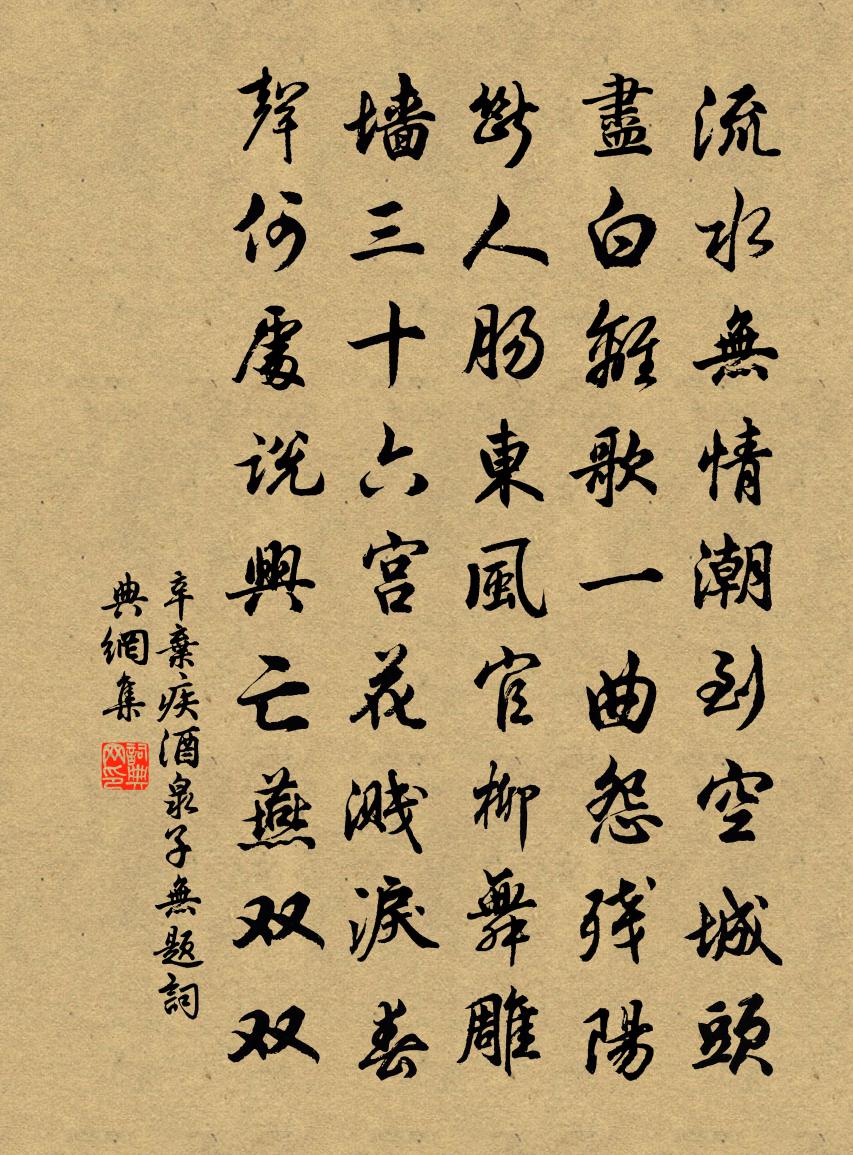 流水無情潮到空城頭
盡白離歌一曲怨残陽
斷人肠東風官柳舞雕
墙三十六宫花溅淚春
聲何處説興亡燕双双
辛棄疾酒泉子無题詞
典網集
詞典
网印